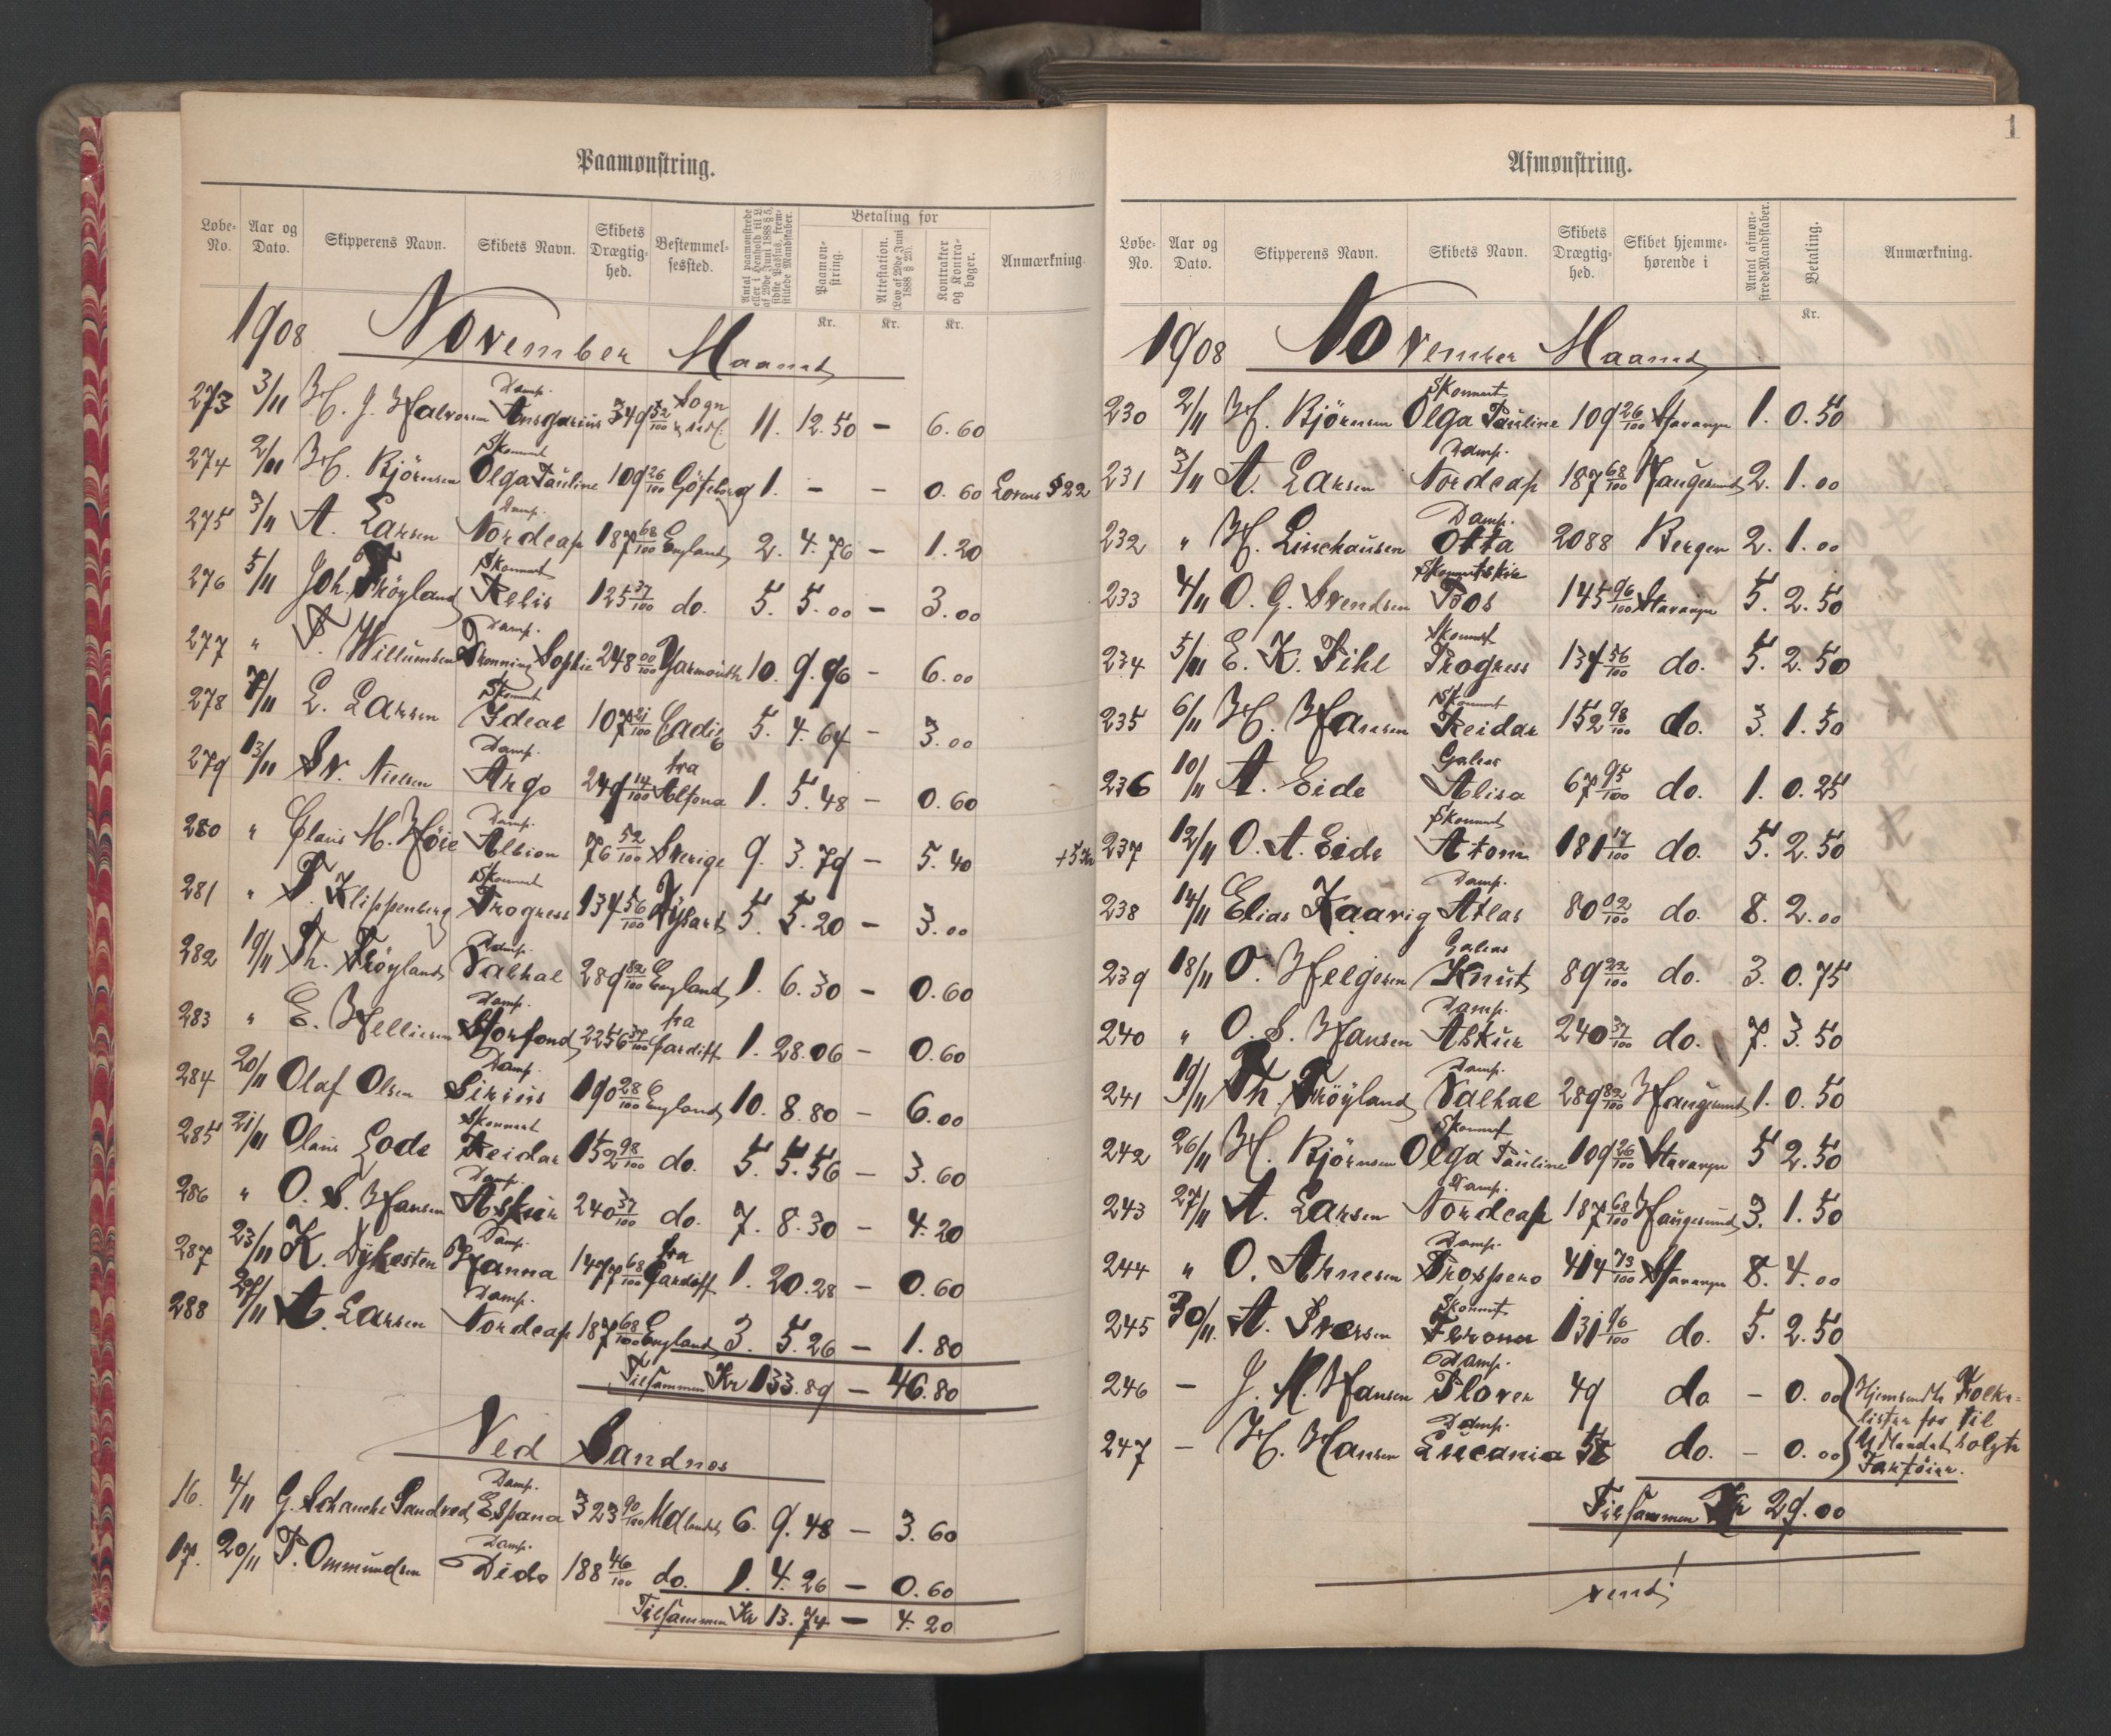 Paamønstring.
Løbe-No. Aar og Dato. Skipperens Navn. Skibets Navn. Skibets Drægtig-hed. Bestemmel-sessted. Antal paamønstrede eller i Henhold til L. af 29de Juni 1888 § 5, sidste Passus, frem-stillede Mandskaber. Betaling for Paamøn-string. Attestation. (Lov af 29de Juni 1888 § 25). Kontrakter og Kontra-bøger. Anmærkning.
Kr. Kr. Kr.
1908 November Maaned
273 3/11 H. J. Halvorsen Damp. Ansgarius 349 52/100 Sogn 11. 12.50 – 6.60
274 2/11 H. Björnsen Skonnert Olga Pauline 109 26/100 Göteborg 1. – – 0.60 Lovens § 22
275 3/11 A. Larsen Damp. Nordcap 187 68/100 England 2. 4.76 – 1.20
276 5/11 Joh. Fröyland Skonnert Relis 125 37/100 do. 5. 5.00 – 3.00
277 " Willumsen Damp. Dronning Sophie 248 00/100 Yarmouth 10. 9.96 – 6.00
278 7/11 L. Larsen Skonnert Ideal 107 21/100 Cadix 5. 4.64 – 3.00
279 13/11 Sv. Nielsen Damp. Argo 249 14/100 fra Altona 1. 5.48 – 0.60
280 " Claus M. Höie Damp. Albion 76 52/100 Sverige 9. 3.79 – 5.40 + 5 Kr
281 " P. Klippenberg Skonnert Progress 134 56/100 5. 5.20 – 3.00
282 19/11 Th. Fröyland Damp. Valhal 289 82/100 England 1. 6.30 – 0.60
283 " E. Helliesen Damp. Storfond 2256 37/100 fra Cardiff 1. 28.06 – 0.60
284 20/11 Olaf Olsen Damp. Sirius 190 28/100 England 10. 8.80 – 6.00
285 21/11 Olaus Lode Skonnert Reidar 152 98/100 do. 5. 5.56 – 3.60
286 " O. S. Hansen Damp. Askur 240 37/100 do. 7. 8.30 – 4.20
287 23/11 K. Dykesten Damp. Hanna 1477 68/100 fra Cardiff 1. 20.28 – 0.60
288 27/11 A. Larsen Damp. Nordcap 187 68/100 England 3. 5.26 – 1.80
Tilsammen Kr 133.89 – 46.80
Ved Sandnes
16. 4/11 G. Schanche Sandved Damp. Espana 323 90/100 Udlandet 6. 9.48 – 3.60
17. 20/11 P. Ommundsen Damp. Dido 188 46/100 do. 1. 4.26 – 0.60
Tilsammen Kr 13.74 – 4.20
1
Afmønstring.
Løbe-No. Aar og Dato. Skipperens Navn. Skibets Navn. Skibets Drægtig-hed. Skibet hjemme-hørende i Antal afmøn-strede Mandskaber. Betaling. Anmærkning.
Kr.
1908 November Maaned
230 2/11 H. Björnsen Skonnert Olga Pauline 109 26/100 Stavanger 1. 0.50
231 3/11 A. Larsen Damp. Nordcap 187 68/100 Haugesund 2. 1.00
232 " H. Linchausen Damp. Otta 2088 Bergen 2. 1.00
233 4/11 O. G. Svendsen Bos 145 96/100 Stavanger 5. 2.50
234 5/11 E. K. Pihl Skonnert Progress 134 56/100 do. 5. 2.50
235 6/11 H. Hansen Skonnert Reidar 152 98/100 do. 3. 1.50
236 10/11 A. Eide Galeas Alisa 67 95/100 do. 1. 0.25
237 12/11 O. A. Eide Skonnert Atom 181 17/100 do. 5. 2.50
238 14/11 Elias Kaarig Damp. Atlas 80 02/100 do. 8. 2.00
239 18/11 O. Helgesen Galeas Knut 89 22/100 do. 3. 0.75
240 " O. S. Hansen Damp. Askur 240 37/100 do. 7. 3.50
241 19/11 Th. Fröyland Damp. Valhal 289 82/100 Haugesund 1. 0.50
242 26/11 H. Björnsen Skonnert Olga Pauline 109 26/100 Stavanger 5 2.50
243 27/11 A. Larsen Damp. Nordcap 187 68/100 Haugesund 3. 1.50
244 " O. Arnesen Damp. Prospero 414 73/100 Stavanger 8. 4.00
245 30/11. A. Iversen Skonnert Verona 131 96/100 do. 5. 2.50
246 – J. M. Hansen Damp. Plover 49 do – 0.00 Hjemsendte Folke-
lister for til
247 – H. Hansen Damp. Lucania do. – 0.00 Udlandet solgte
Fartöier.
Tilsammen Kr 29.00
vend!